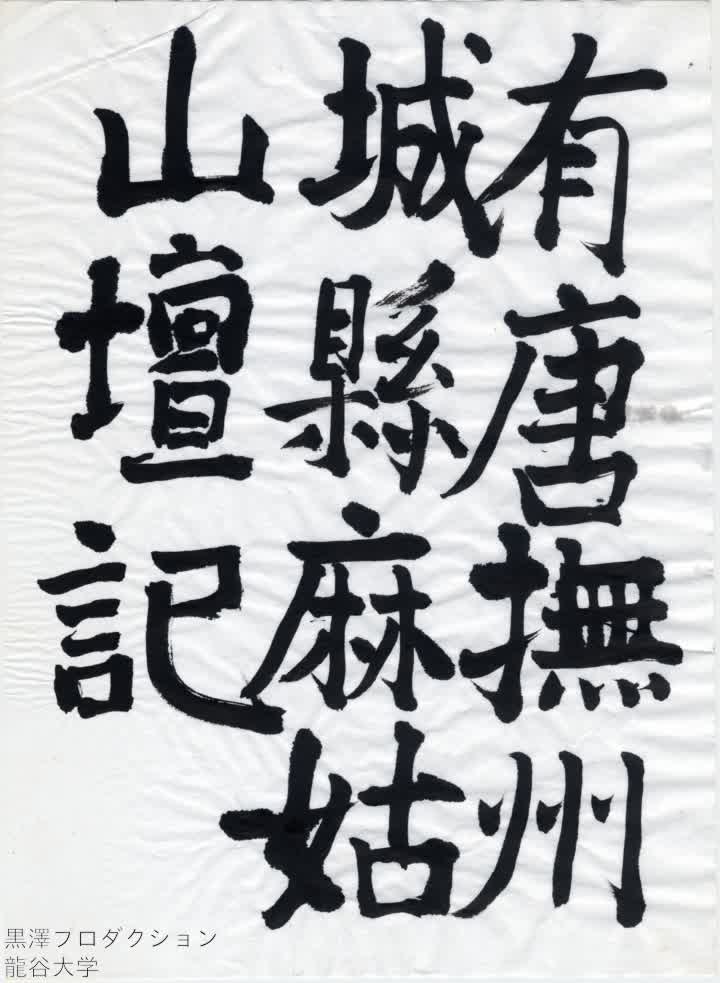 有唐撫州
城縣麻姑
山壇記
黒澤フロダクション
龍谷大学